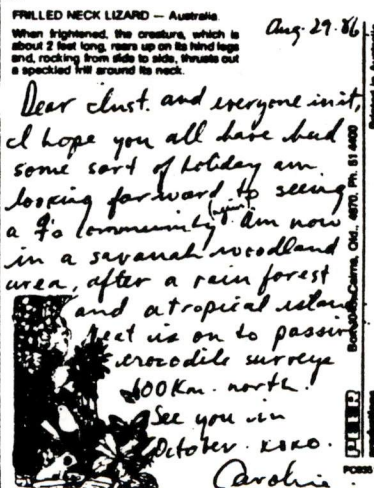 FRILLED NECK LIZARD — Australia.
When frightened, the creature, which is
about 2 feet long, rears up on its hind legs
and, rocking from side to side, thrusts out
a speckled frill around its neck.
Aug. 29. 86
Dear clust. and everyone in it,
I hope you all have had
some sort of holiday am
looking forward to seeing
a community (again). Am now
in a savanah woodland
area, after a rain forest
and a tropical island
is on to
crocodile surveys
600 Km. north.
See you in
October. xoxo.
Caroline.
Cairns, Qld., 4870, Ph. 51 4400